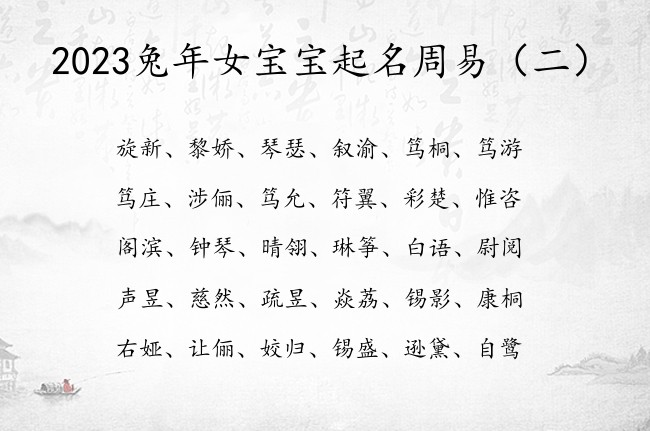 2023兔年女宝宝起名周易（二）
旋新、黎娇、琴瑟、叙渝、笃桐、笃游
笃庄、涉俪、笃允、符翼、彩楚、惟咨
阁滨、钟琴、晴翎、琳筝、白语、尉阅
声昱、慈然、疏昱、焱荔、锡影、康桐
右娅、让俪、姣归、锡盛、逊黛、自鹭